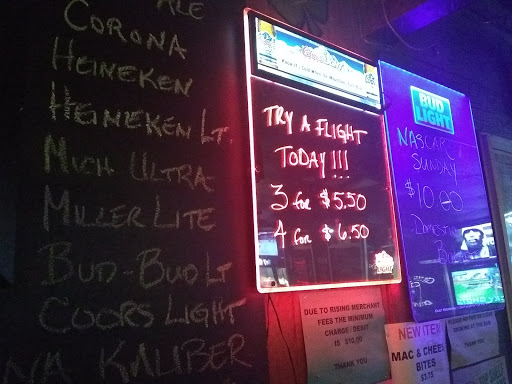 ALE
CORONA
HEINEKEN
HEINEKEN LT.
MICH ULTRA
MILLER LITE
BUD-BUD LT
COORS LIGHT
NA KALIBER
TRY A FLIGHT
TODAY!!!
3 for $5.50
4 for $6.50
BUD
LIGHT
NASCAR
SUNDAY
$10.00
DOMESTIC
DUE TO RISING MERCHANT
FEES THE MINIMUM
CHARGE/DEBIT
IS $10.00
THANK YOU
NEW ITEM
MAC & CHEESE
BITES
$3.75
THANK YOU